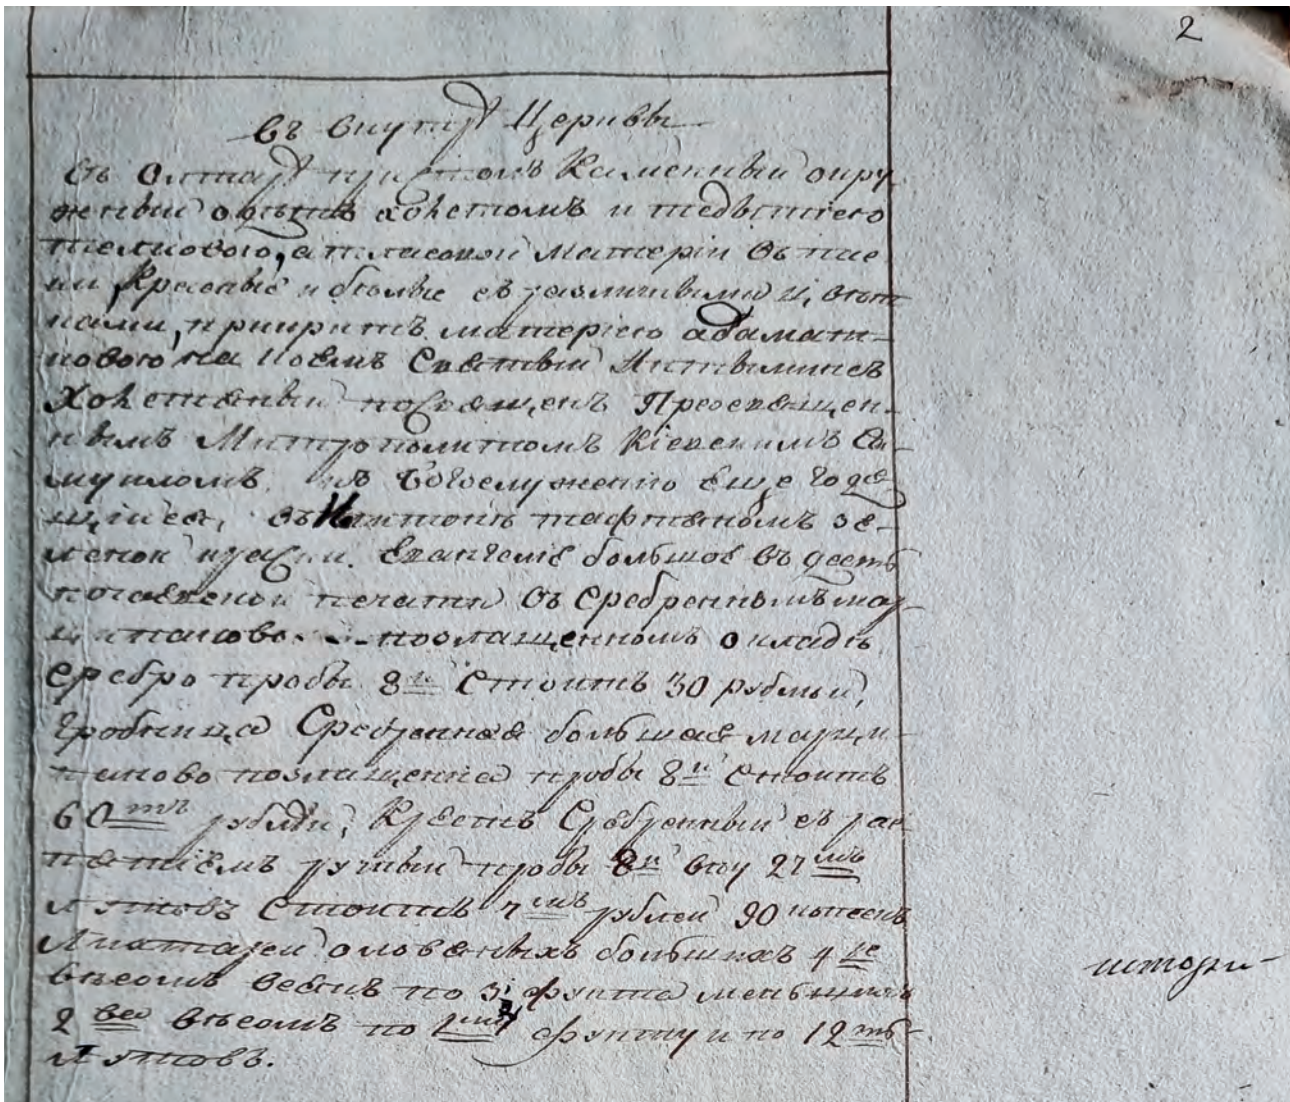 2
Въ внутрѣ Церквы
Въ Олтарѣ престолъ Каменный окру
женный одѣтъ холстомъ и
шелковою, атласной матеріи
Красные и бѣлые съ различными цвѣт
ками, прикритъ матеріею адамаш-
ковою на коемъ Святый Антыминсъ
Холстяный посвященъ Преосвящен-
нымъ Митрополитомъ Кіевскимъ Са-
муиломъ къ Богослуженію Еще годя
щійся, въ Илитонѣ тафтяномъ зе-
леной краски. Евангеліе большое въ десть
почаевской печати въ Сребренномъ мар
ципаново позлащенномъ окладѣ
сребро пробы 8й Стоитъ 30 рублей,
Гробница Сребренная большая марци-
паново позлащенна пробы 8й Стоитъ
60ть рублей, Крестъ Сребренный съ рас
пятіемъ ручный пробы 8й вѣсу 27мъ
Лутовъ Стоитъ 7мъ рублей 90 копеекъ
Лихтарей оловяныхъ большихъ 4ре
вѣсомъ по 3 фунта меньшихъ
2ва вѣсомъ по фунту и по 12ть
Лутовъ.